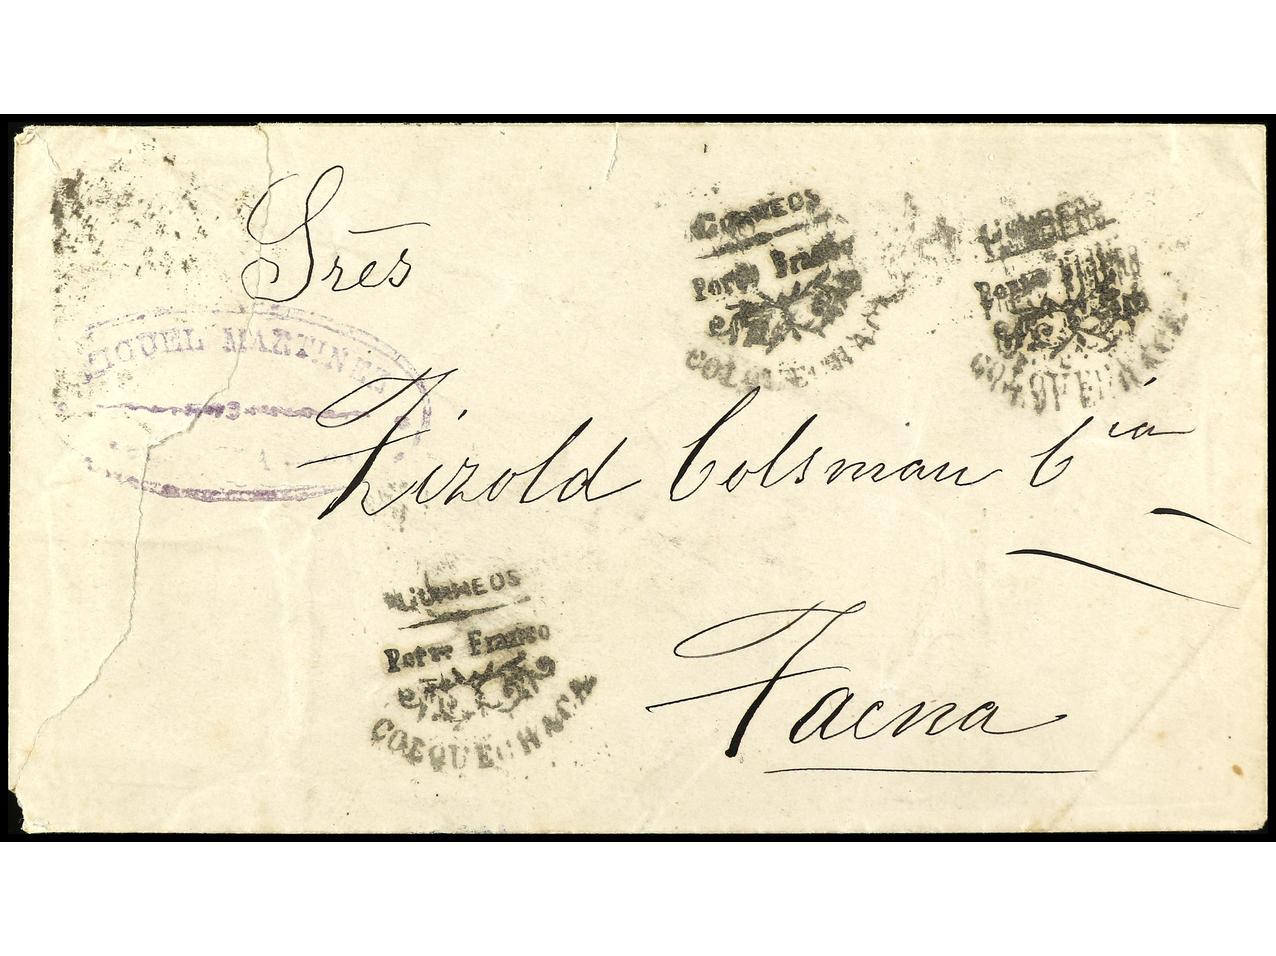 Sres
CORREOS
Porte Franco
COLQUECHACA
CORREOS
Porte
COLQUECHACA
MIGUEL MARTINEZ
Zizold Colsman Cia
CORREOS
Porte Franco
COLQUECHACA
Tacna